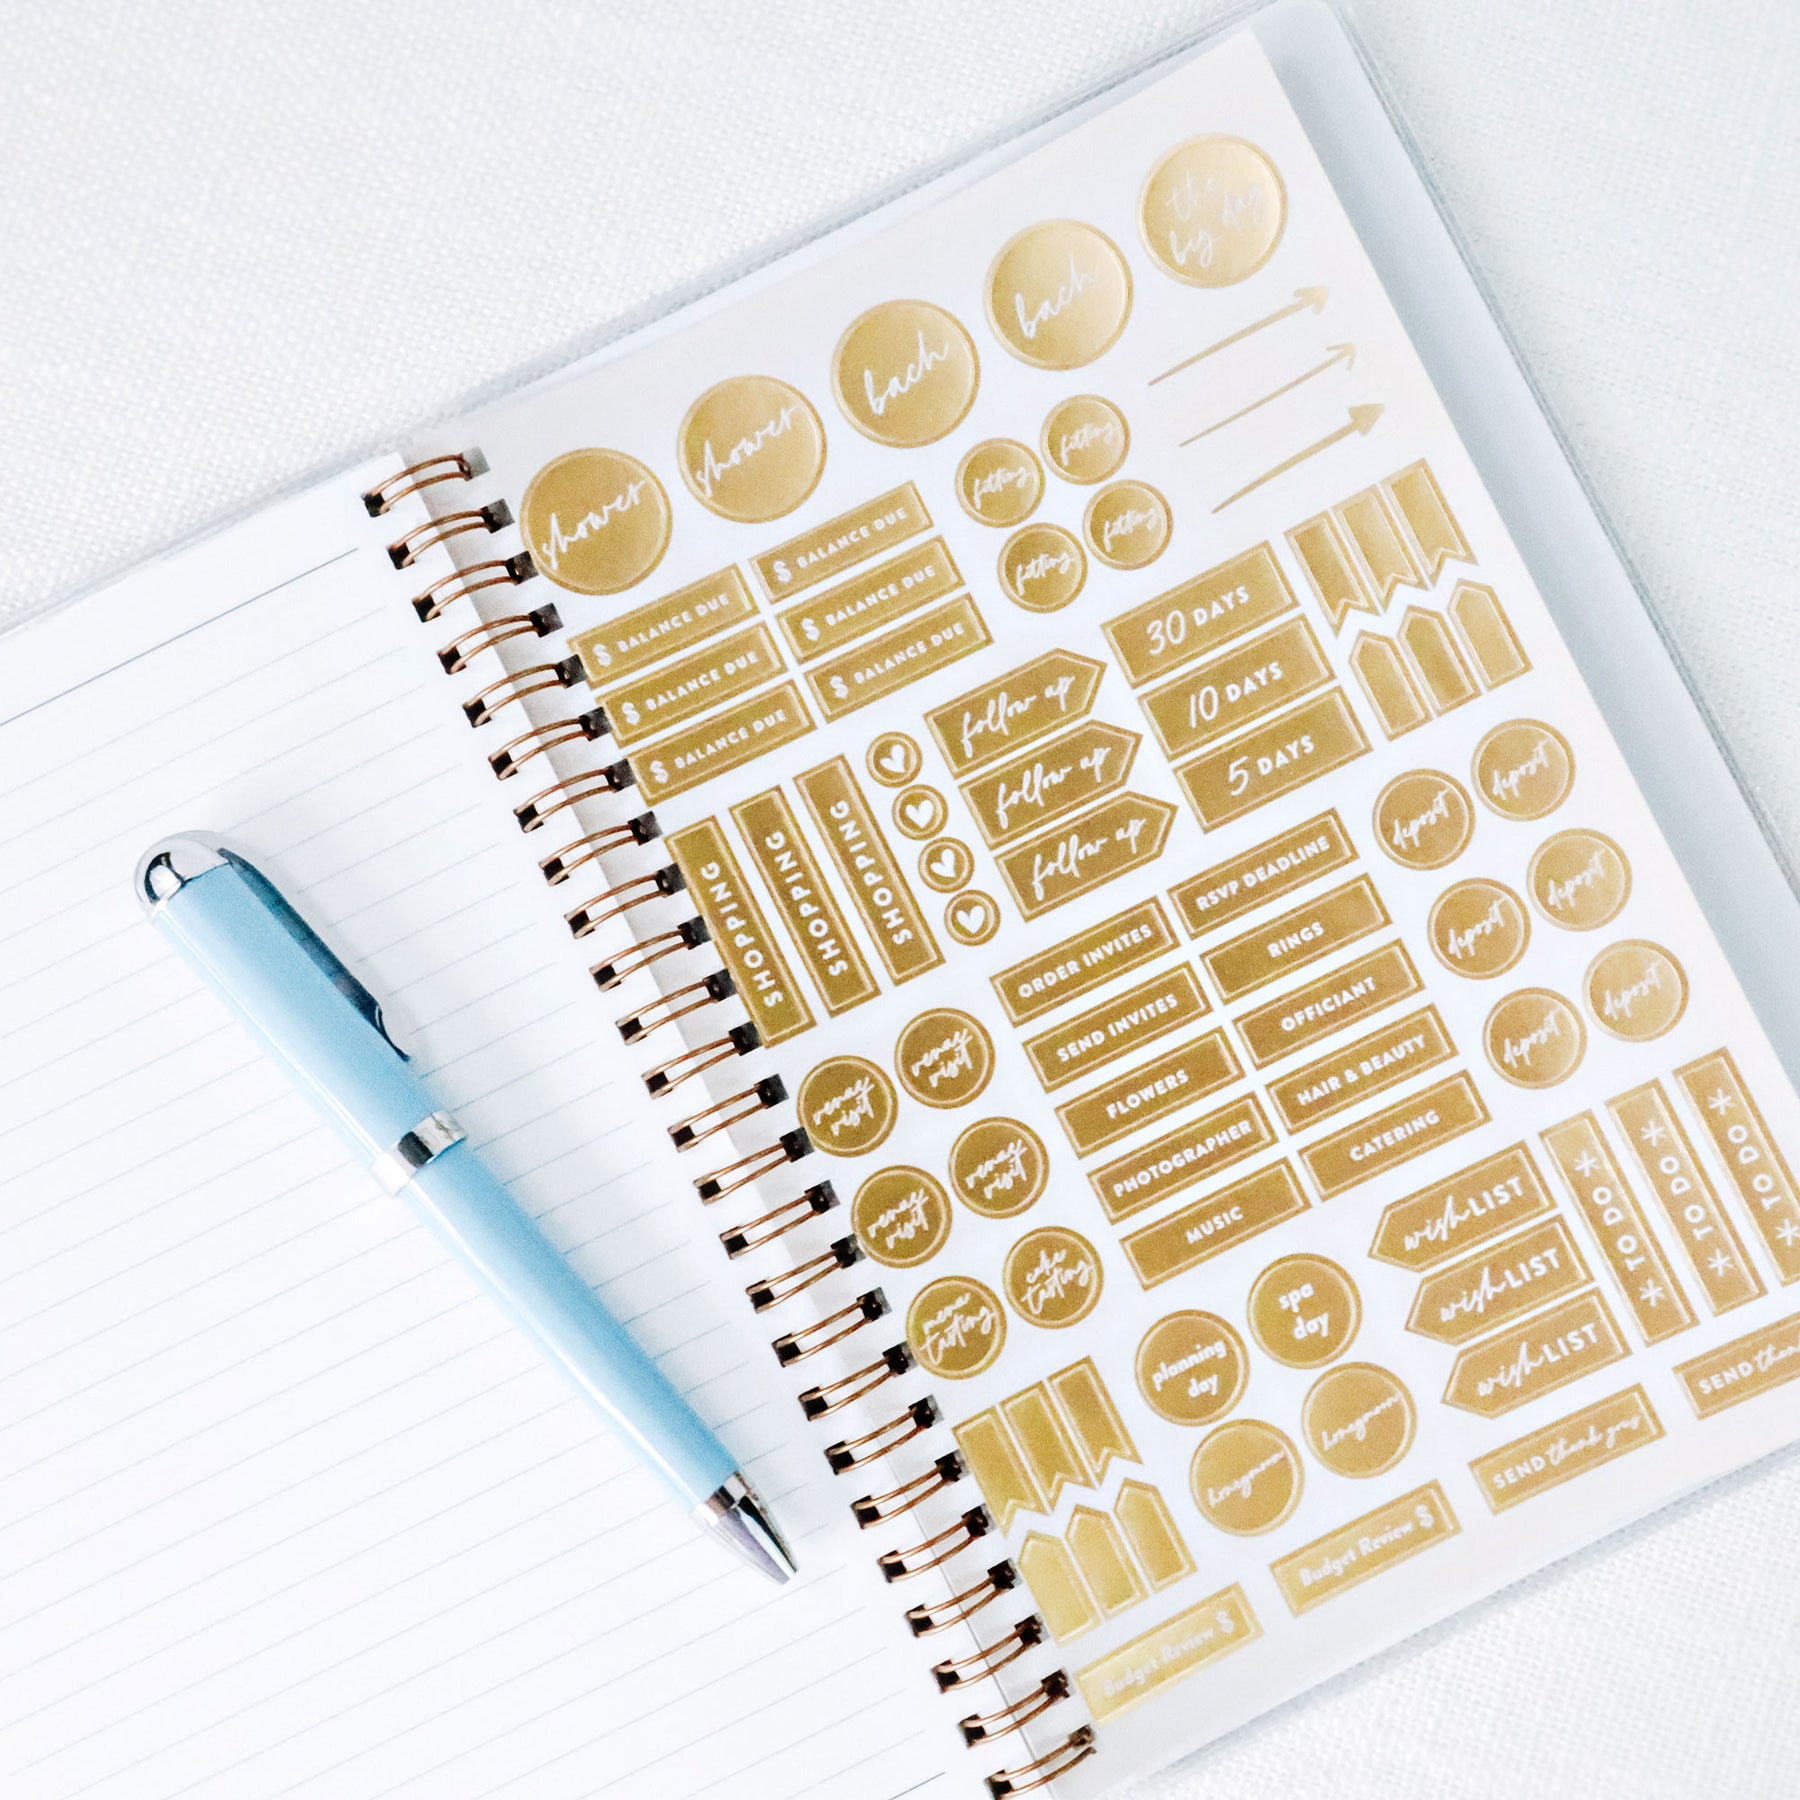 shower
shower
bach
bach
the
big day
$ BALANCE DUE
$ BALANCE DUE
$ BALANCE DUE
$ BALANCE DUE
$ BALANCE DUE
$ BALANCE DUE
fitting
fitting
fitting
fitting
30 DAYS
10 DAYS
5 DAYS
follow up
follow up
follow up
SHOPPING
SHOPPING
SHOPPING
ORDER INVITES
SEND INVITES
FLOWERS
PHOTOGRAPHER
MUSIC
RSVP DEADLINE
RINGS
OFFICIANT
HAIR & BEAUTY
CATERING
deposit
deposit
deposit
deposit
deposit
deposit
venay
visit
venay
visit
venay
visit
venay
visit
menu
tasting
cake
tasting
planning
day
spa
day
honeymoon
honeymoon
wishLIST
wishLIST
wishLIST
* TO DO *
* TO DO *
* TO DO *
SEND thank you
SEND than
Budget Review $
Budget Review $